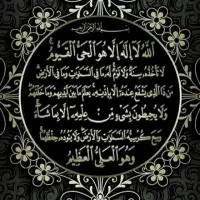 الله لا إله إلا هو الحي القيوم
لا تأخذه سنة ولا نوم له ما في السموات وما في الأرض
من ذا الذي يشفع عنده إلا بإذنه يعلم ما بين أيديهم وما خلفهم
ولا يحيطون بشيء من علمه إلا بما شاء
وسع كرسيه السموات والأرض ولا يؤده حفظهما
وهو العلي العظيم